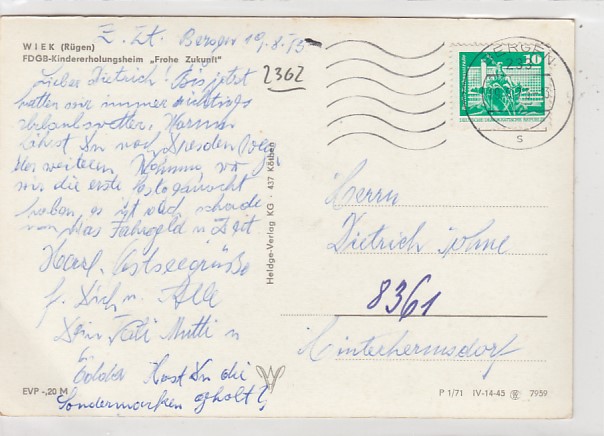 Z. Zt. Bergen 19.8.75
WIEK (Rügen)
FDGB-Kindererholungsheim „Frohe Zukunft"
2362
Lieber Dietrich! Bis jetzt
hatten wir immer richtiges
Urlaubswetter. Warum
fährst Du nach Dresden
der weiteren Wohnung wo
wir die erste
haben, es ist doch schade
um das Fahrgeld u Zeit
Herzl. Ostseegrüße
f. Dich u. Alle
Dein Vati Mutti u
Hast Du die
Sondermarken geholt?
EVP -,20 M
Heldge-Verlag KG · 437 Köthen
BERGEN
10
DEUTSCHE DEMOKRATISCHE REPUBLIK
s
Herrn
Dietrich
8361
Hinterhermsdorf
P 1/71 IV-14-45 7959